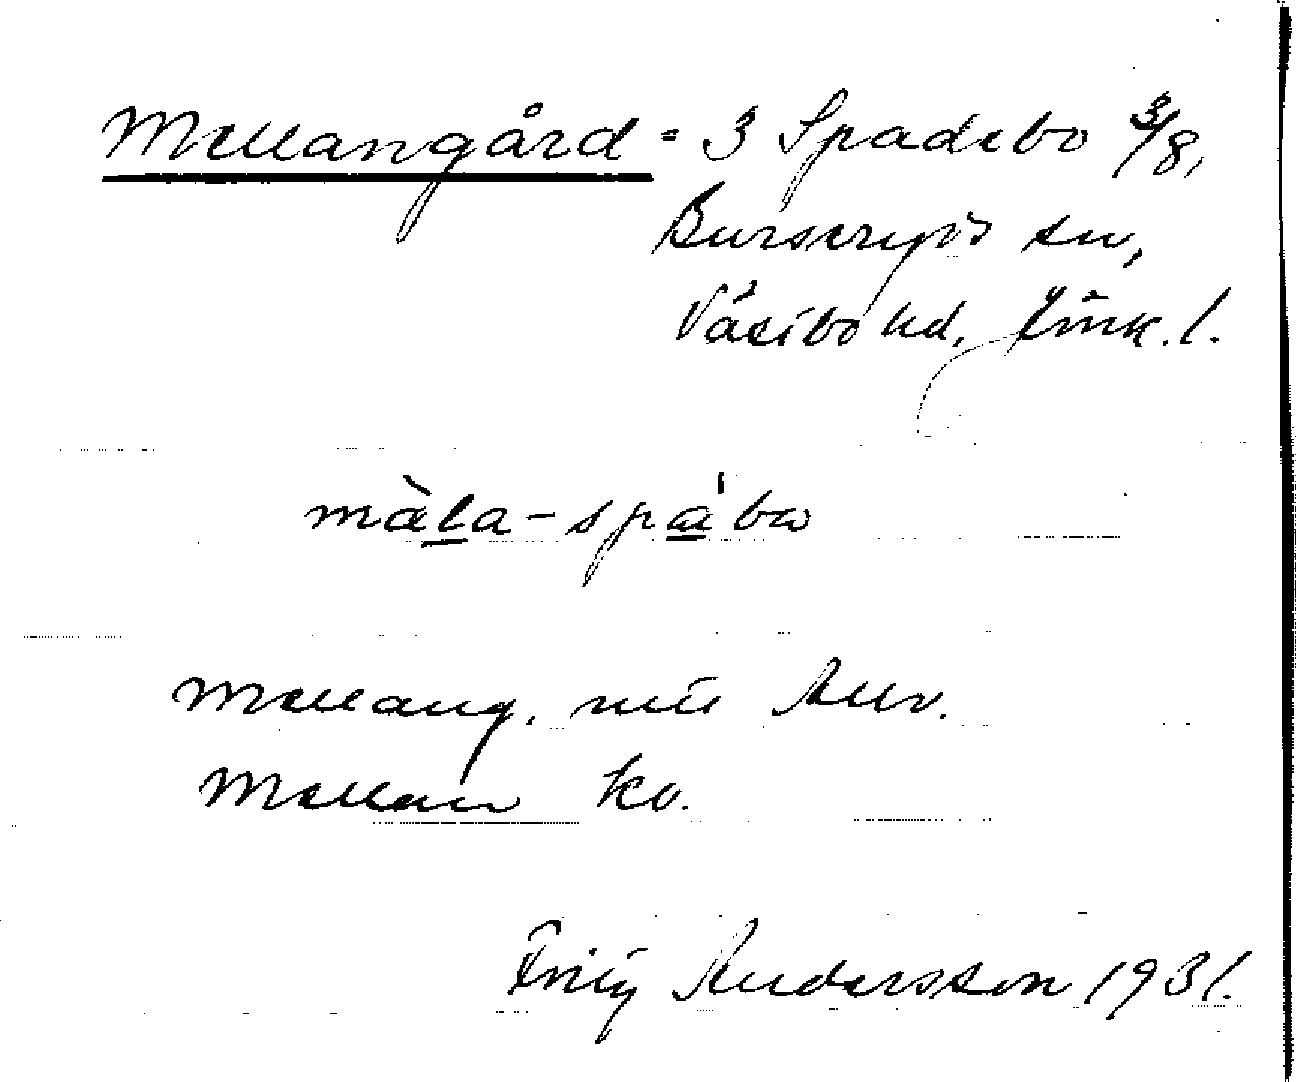 Mellangård = 3 Spadebo 3/8,
Burseryds sn,
Västbo hd, Jönk. l.
màla-spa'bω
Mellang. mil. Allv.
Mellan kv.
Fritz Andersson 1931.